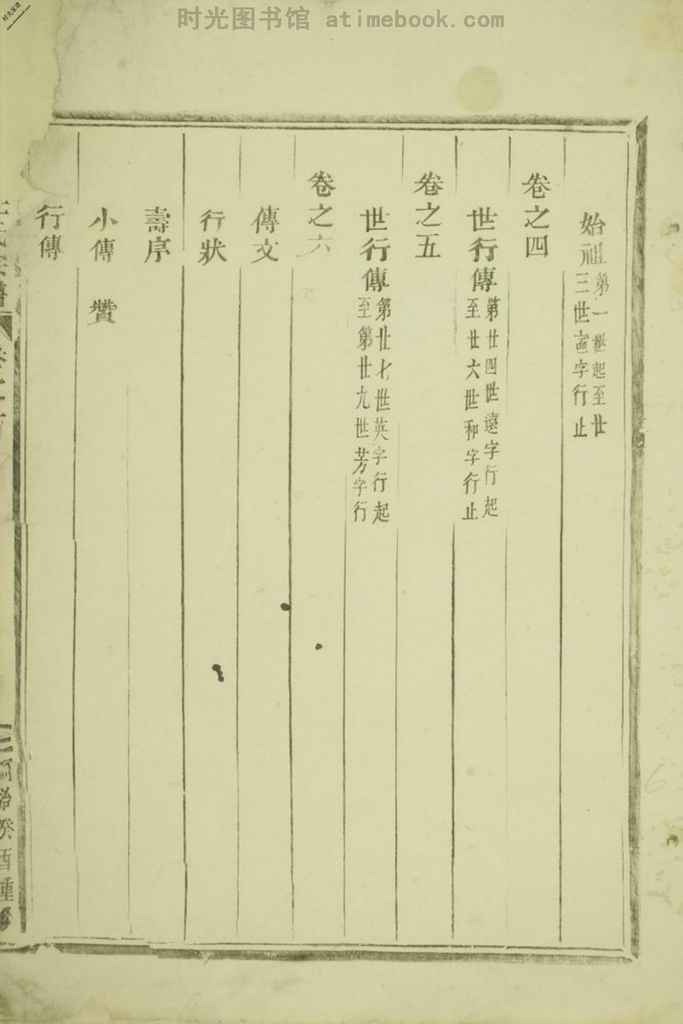 时光图书馆 atimebook.com
始祖第一世起至廿
三世 字行止
卷之四
世行傳第廿四世遠字行起
至廿六世和字行止
卷之五
世行傳第廿七世英字行起
至第廿九世芳字行
卷之六
傳文
行狀
壽序
小傳 贊
行傳
癸酉重